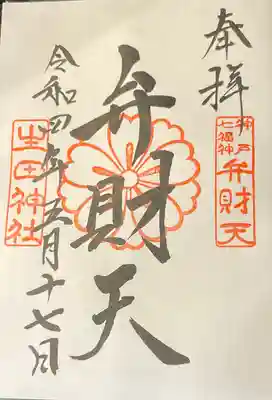 奉拝
神戸七福神
弁財天
弁財天
令和四年五月十七日
生田神社